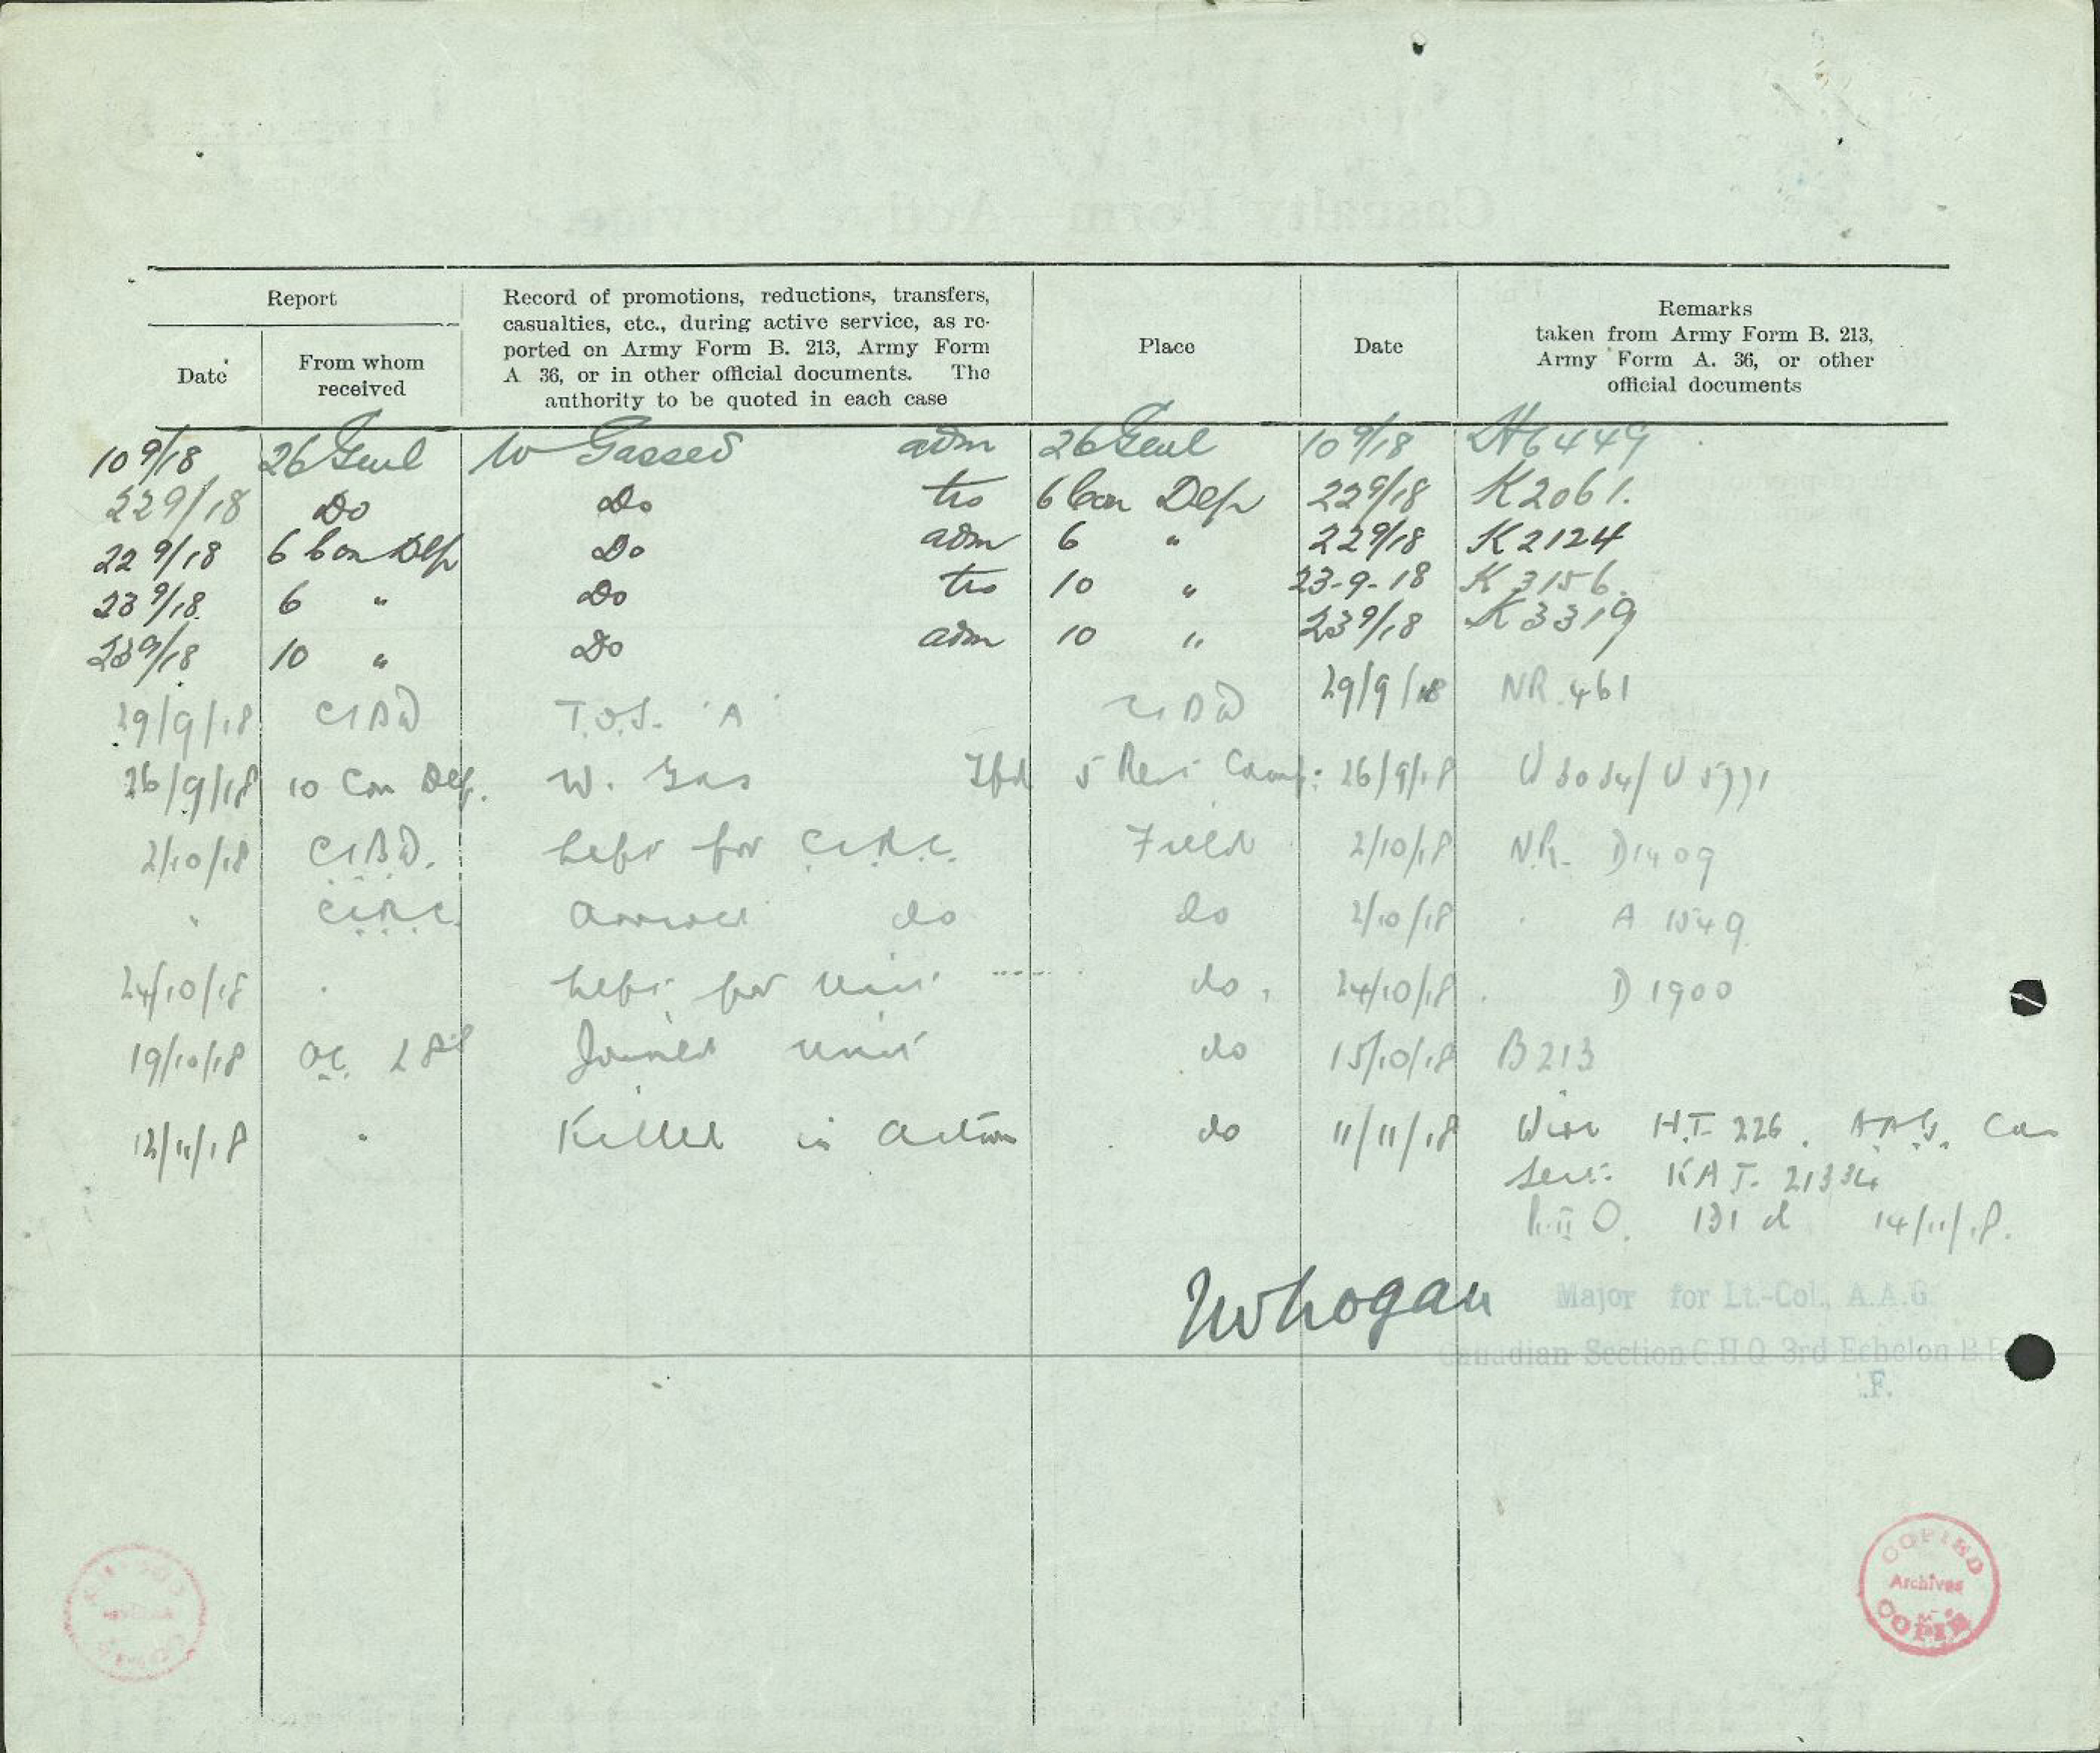 Casualty Form—Active Service.
Report
Date
From whom received
Record of promotions, reductions, transfers,
casualties, etc., during active service, as re-
ported on Army Form B. 213, Army Form
A 36, or in other official documents. The
authority to be quoted in each case
Place
Date
Remarks
taken from Army Form B. 213,
Army Form A. 36, or other
official documents
10 9/18 26 Genl W Gassed adm 26 Genl 10 9/18 H6449
22 9/18 Do Do trs 6 Con Dep 22 9/18 K2061.
22 9/18 6 Con Dep Do adm 6 " 22 9/18 K2124
23 9/18. 6 " Do trs 10 " 23-9-18 K3156.
23 9/18 10 " Do adm 10 " 23 9/18 K3319
29/9/18 CIBD T.O.S. 'A' CIBD 29/9/18 NR. 461
26/9/18 10 Con Dep. W. Gas Tfd 5 Rest Camp: 26/9/18
2/10/18 C.I.B.D. Left for C.C.R.C. Field 2/10/18 N.R. D1409
" C.C.R.C. Arrived do do 2/10/18 " A 1549
24/10/18 " Left for Unit do. 24/10/18 " D 1900
19/10/18 OC. Joined Unit do 15/10/18 B213
12/11/18 " Killed in Action do 11/11/18 Wire H.T. 226. A.A.G. Can
Sect. 21334
131 d 14/11/18.
Major for Lt.-Col., A.A.G
Canadian Section G.H.Q 3rd Echelon B.E
.F.
COPIED
Archives
COPIED